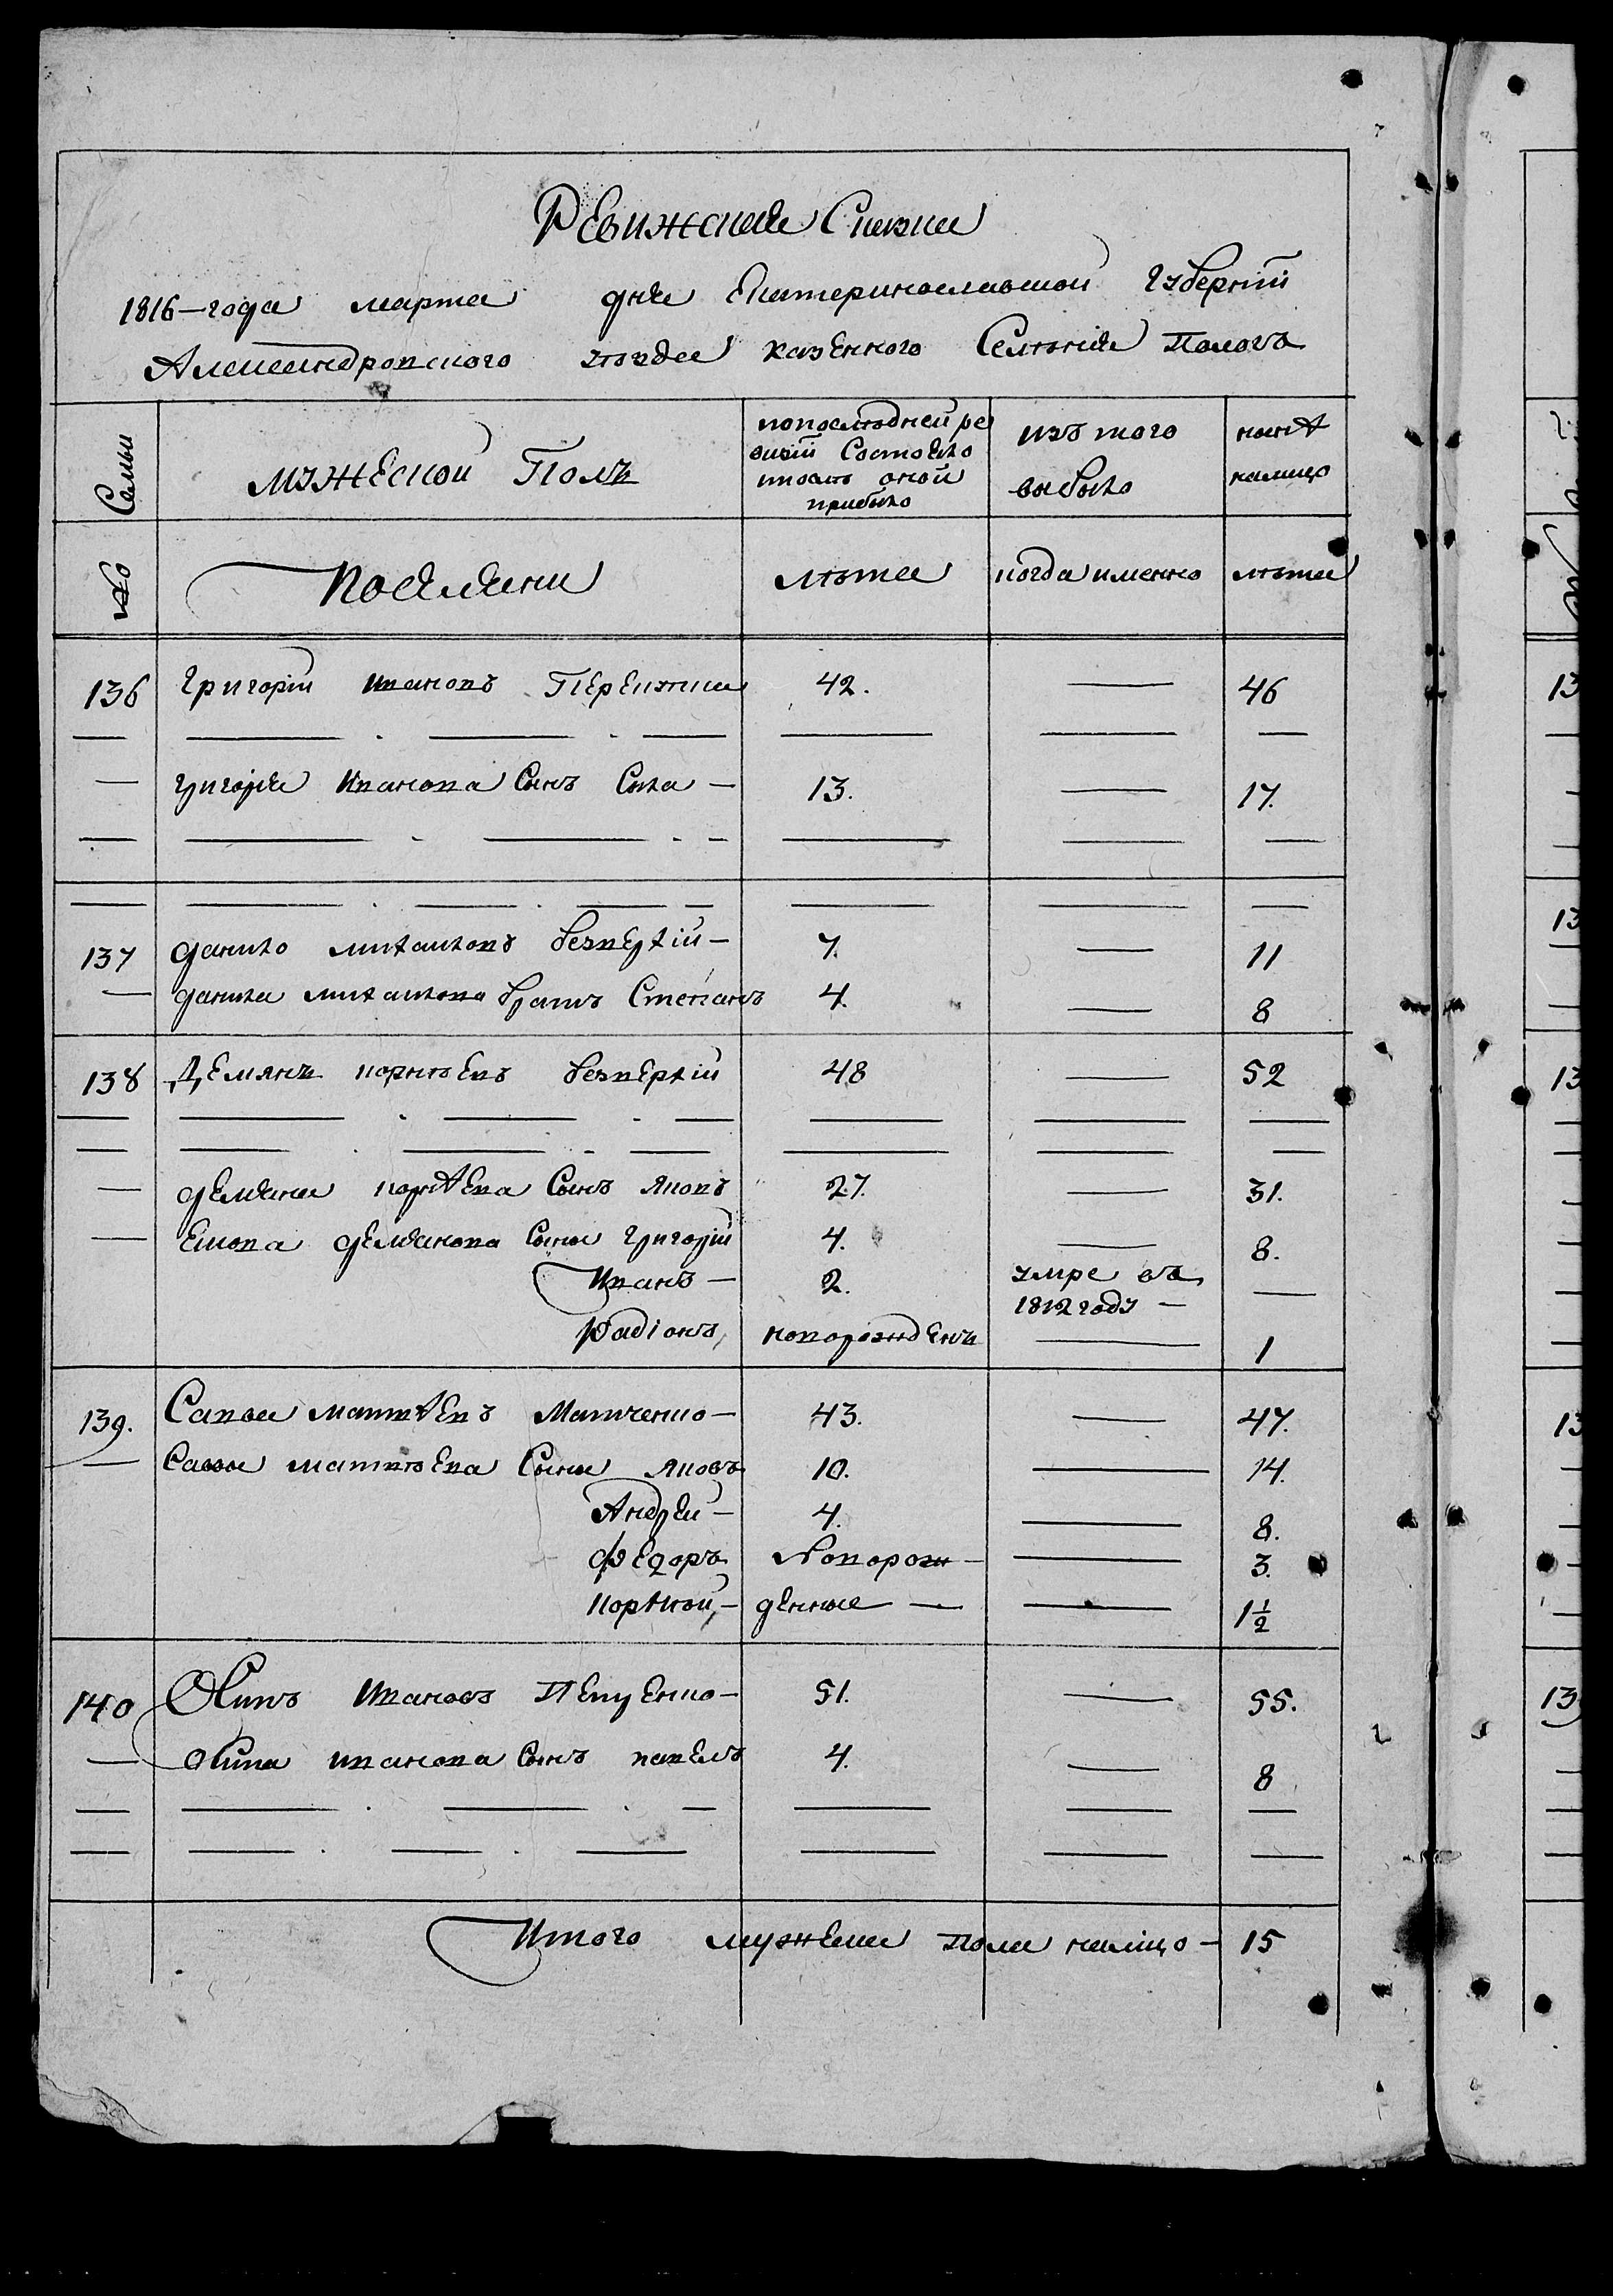 Ревижская Сказка
1816-года марта дня Екатеринославской Губернїи
Александровского уѣзда казенного Селѣнїя Пологъ
№ Семьи
мужеской Полъ
попослѣдней ре
визїи Состояло
ипослѣ оной
прибыло
изъ того
выбыло
нынѣ
налицо
Поселяни
лѣта
когда именно
лѣта
136 Григорїй Ивановъ 42. — 46
— григорїя Иванова Сынъ Сила — 13. — 17.
137 данило михаиловъ безверхїй — 7. — 11
— данила михаилова братъ Степанъ 4. — 8
138 Демянъ корнѣевъ безверхїй 48 — 52
— демяна корнѣева Сынъ яковъ 27. — 31.
— Екова демянова Сыны григорїй 4. — 8.
Иванъ — 2. умре въ —
1812 году —
Радїонъ, новорожденъ — 1
139. Савва матвѣевъ Матченко — 43. — 47.
— Саввы матвѣева Сыны яковъ 10. — 14.
Андрей — 4. — 8.
Федоръ Новорож — — 3.
корнѣй, — денные — — 1 1/2
140 Осипъ Ивановъ — 51. — 55.
— Осипа иванова Сынъ павелъ 4. — 8
Итого мужеска пола налицо — 15
13
13
13
13
13